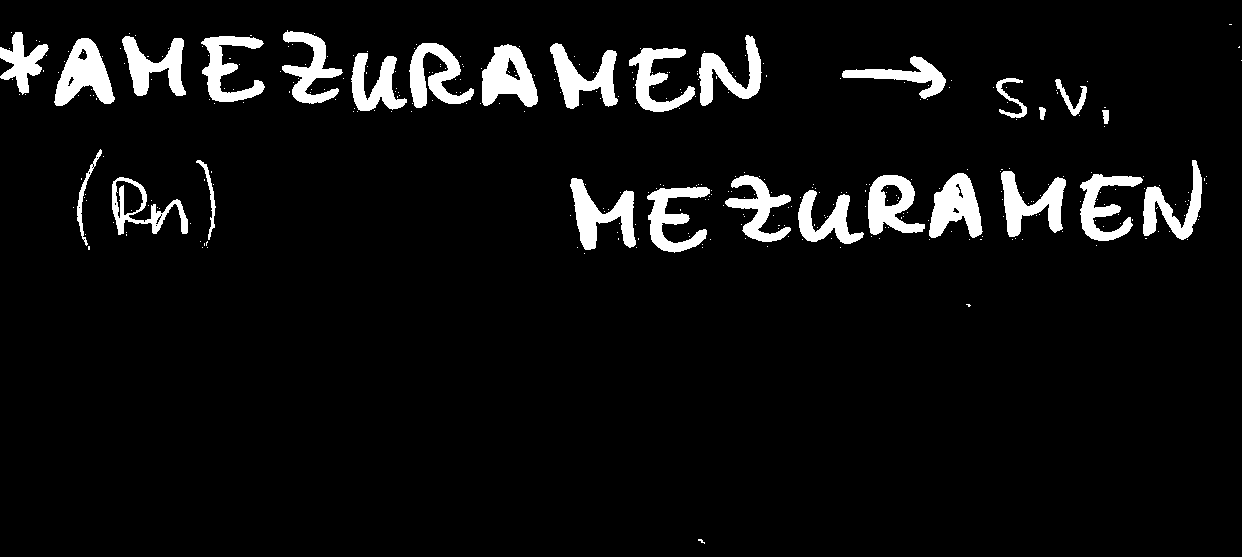 *AMEZURAMEN → s.v.
(Rn) MEZURAMEN